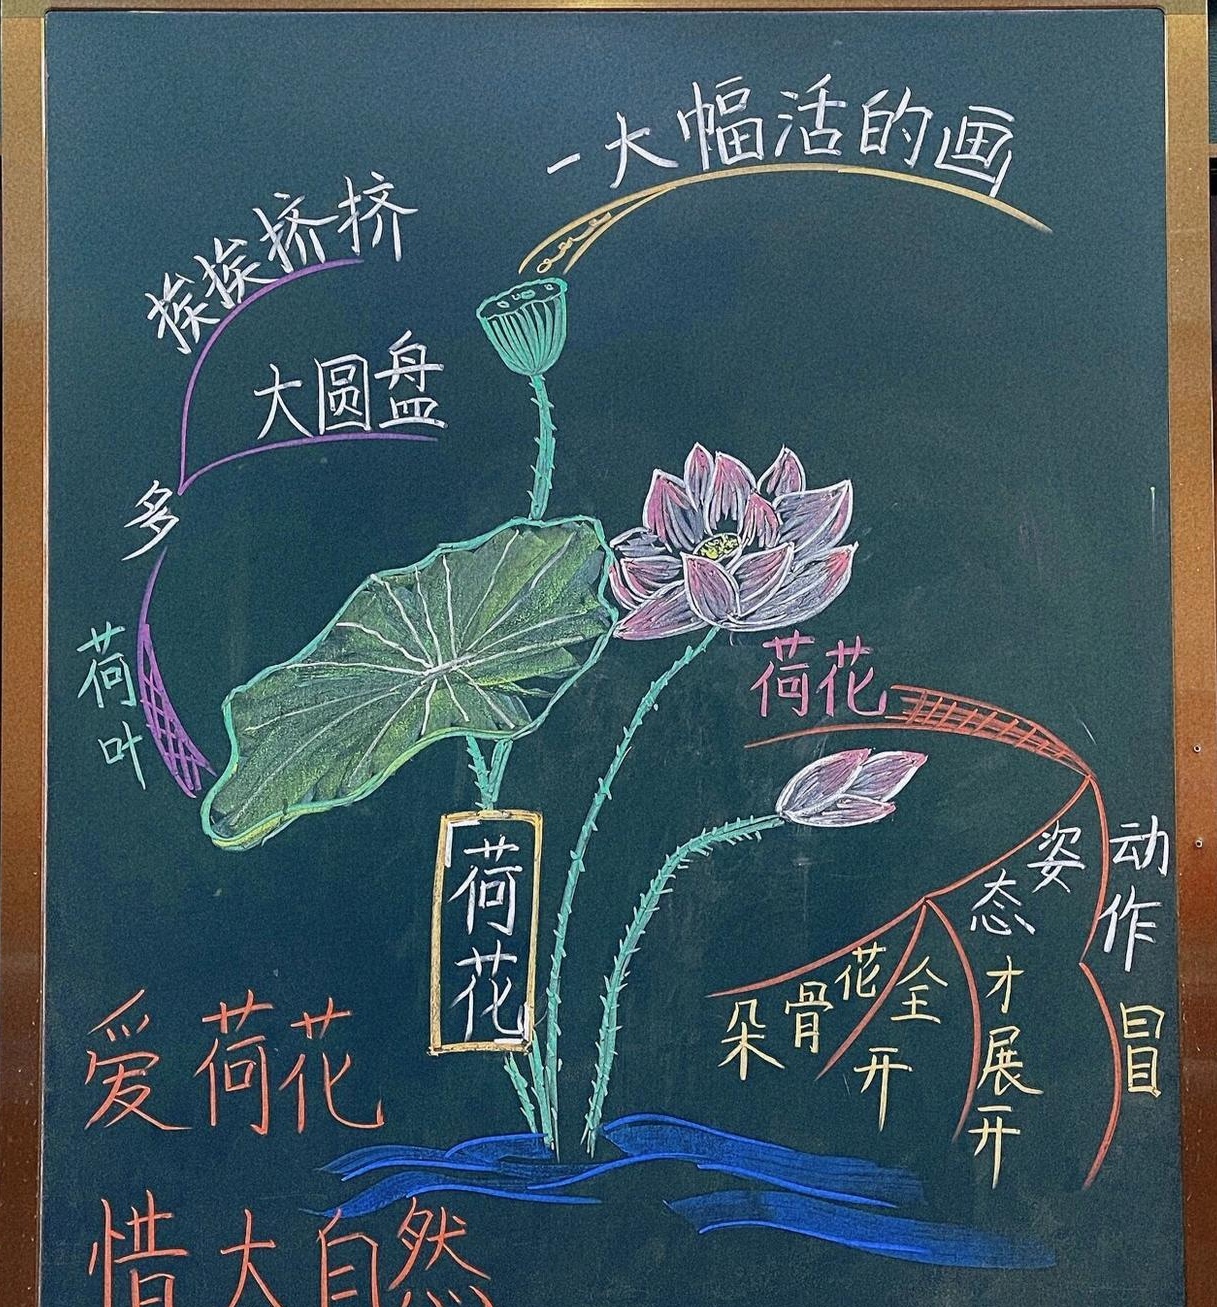 一大幅活的画
挨挨挤挤
大圆盘
多
荷叶
荷花
荷花
动作
姿态
冒
才展开
全开
花骨朵
爱荷花
惜大自然